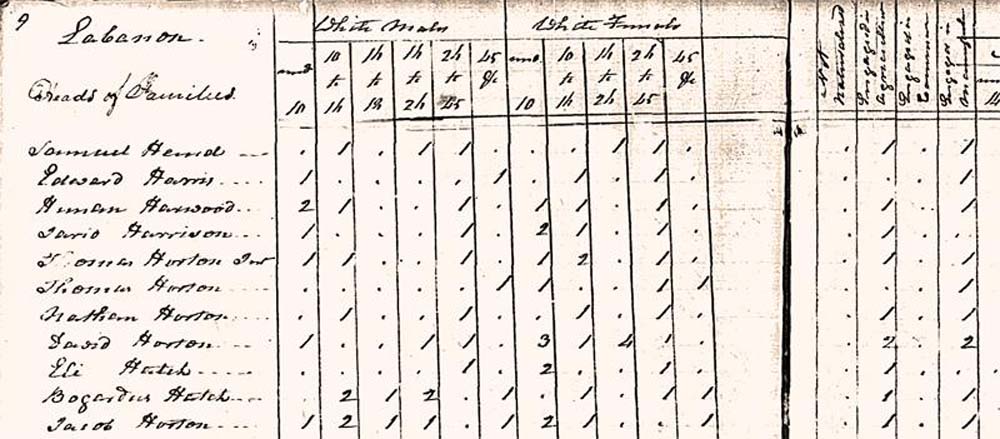 9
Labanon. White Males White Females
und 10 16 16 26 45 und 10 16 26 45
to to to to &c to to to &c
Not Naturalized Engaged in Agriculture Engaged in Commerce Engaged in Manufac
Heads of Families
10 16 18 26 45 10 16 26 45
Samuel . 1 . 1 1 . . . 1 1 . . 1 . 1
Edward Harris 1 . . . . 1 . 1 . 1 . . . . 1
Human Harwood 2 1 . . 1 . 1 1 . 1 . . 1 . 1
Harrison 1 . . . 1 . 2 1 . 1 . . 1 . 1
Thomas Horton Jnr 1 1 . . 1 . 1 2 . 1 . . 1 . 1
Thomas Horton . . . . . 1 1 . . . 1 . 1 . 1
Nathan Horton . 1 . . 1 . . 1 . 1 . . 1 . 1
David Horton 1 . . 1 1 . 3 1 4 1 . . 2 . 2
Eli Hatch . . . . 1 . 2 . . 1 . . 1 . .
Bogardus Hatch . 2 1 2 . 1 . 1 . 1 1 . 1 . 1
Jacob Horton 1 2 1 1 . 1 2 1 . . 1 . 1 . 1